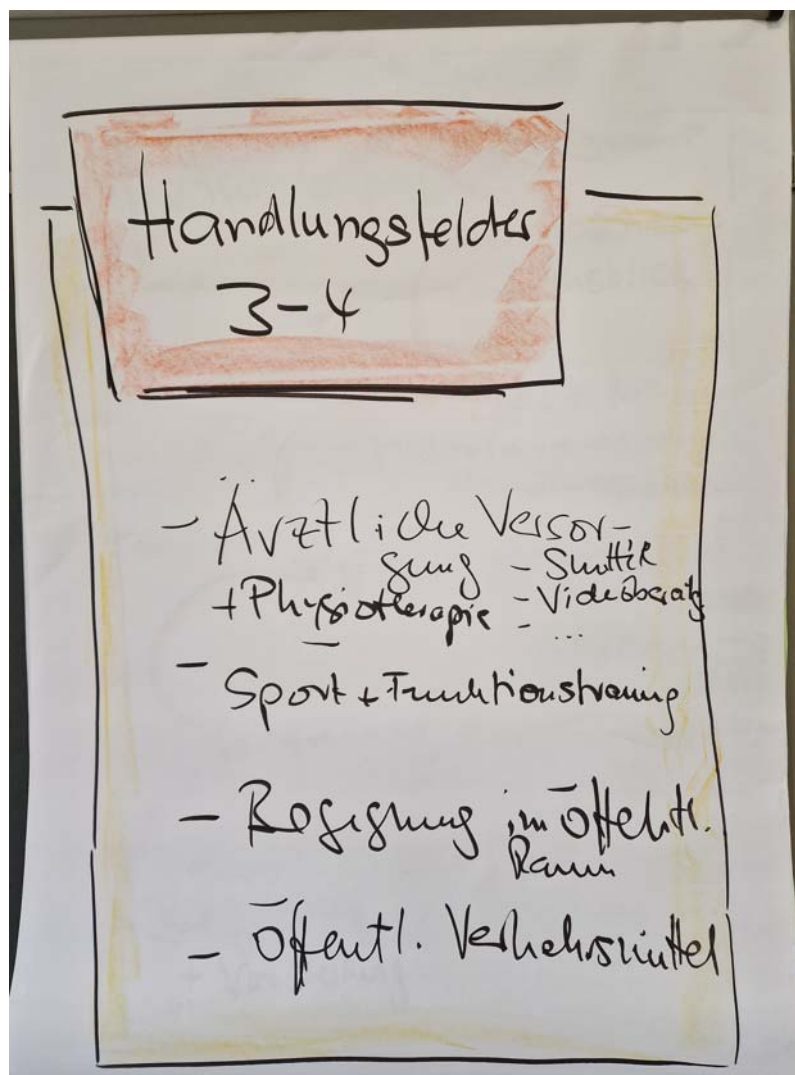 Handlungsfelder
3-4
- Ärztliche Versor-
gung - Shuttle
+ Physiotherapie - Videoberatg
- ...
- Sport + Funktionstraining
- Begegnung im öffentl.
Raum
- Öffentl. Verkehrsmittel